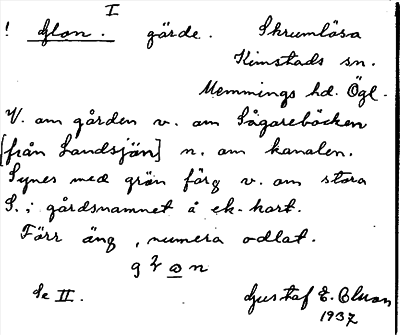 I
! Glon. gärde. Skrumlösa
Kimstads sn.
Memmings hd. Ögl.
V. om gården v. om Sågarebäcken
[från Landsjön] n. om kanalen.
Synes med grön färg v. om stora
S. i gårdsnamnet å ek. kart.
Förr äng, numera odlat.
n
Se II. Gustaf E. Olson
1937